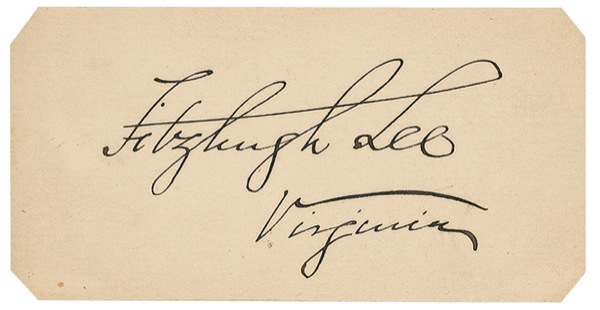 Fitzhugh Lee
Virginia